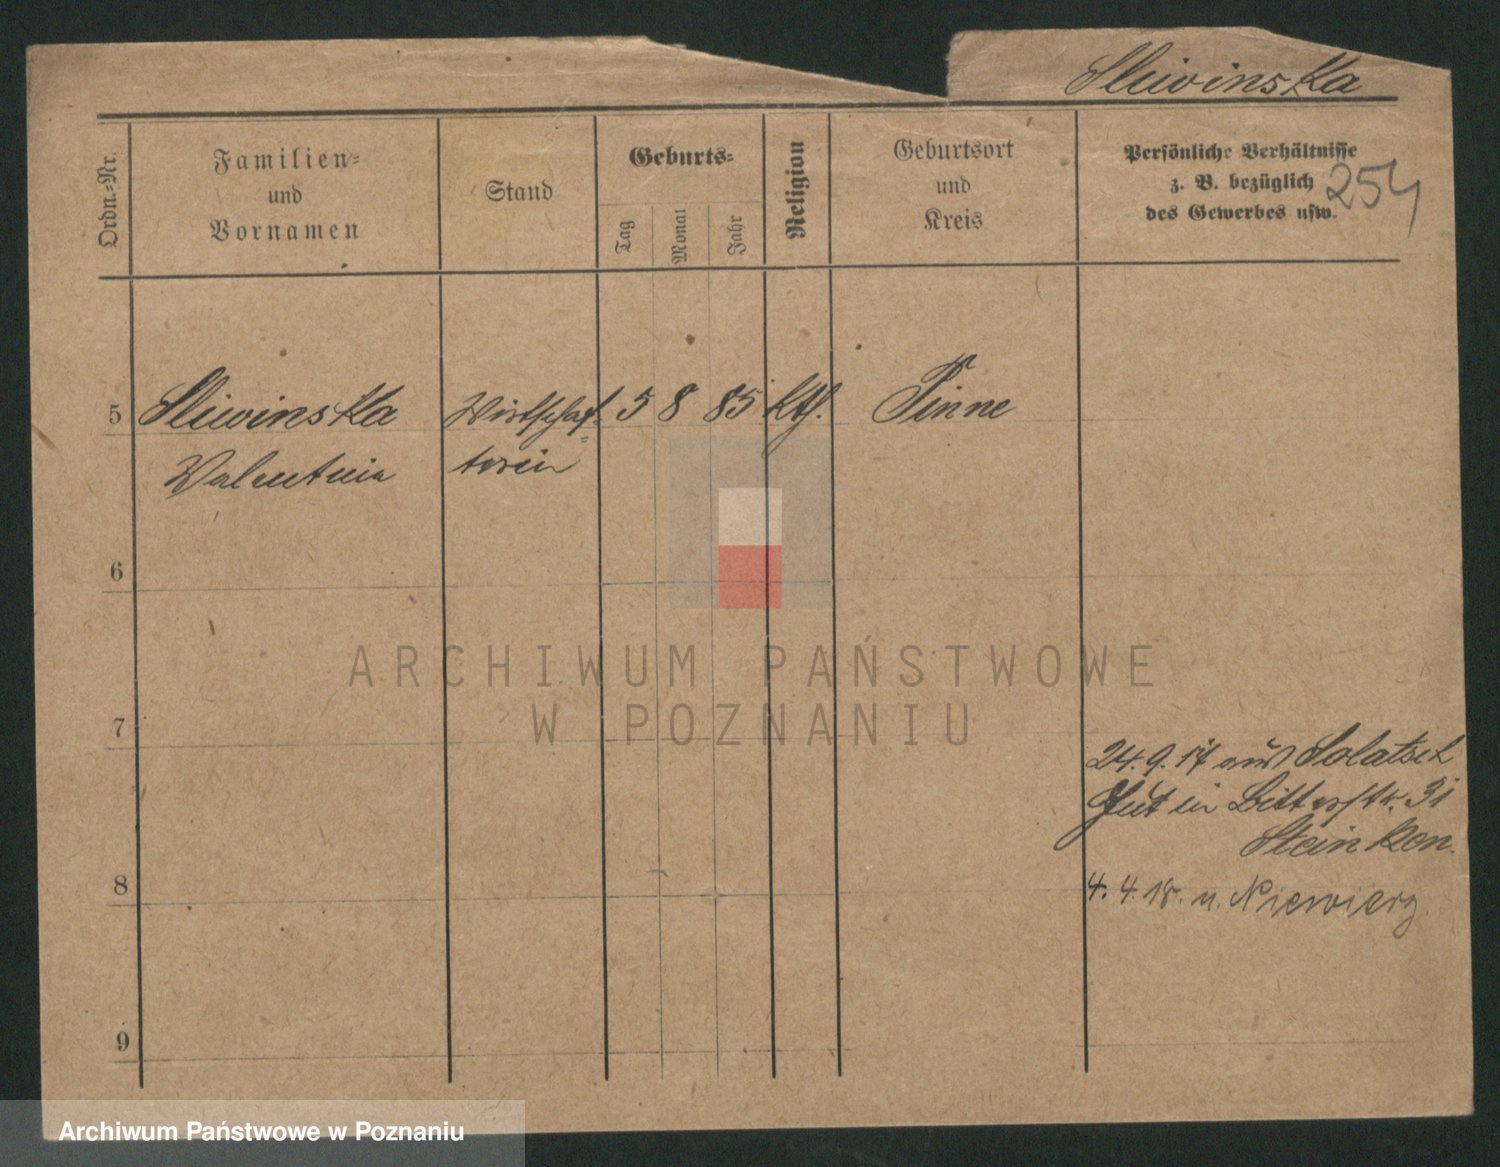 Sliwinska
Ordn.-Nr.
Familien-
und
Vornamen
Stand
Geburts-
Tag
Monat
Jahr
Religion
Geburtsort
und
Kreis
Persönliche Verhältnisse
z. B. bezüglich
des Gewerbes usw.
254
5 Sliwinska Wirtschaf- 5 8 85 kth. Pinne
Valentina terin
6
7
24.9.17 aus Solatsch
Gut in Bitterstr. 31
Stein kon.
8
4.4.18. n. Niewierz
9
ARCHIWUM PAŃSTWOWE
W POZNANIU
Archiwum Państwowe w Poznaniu